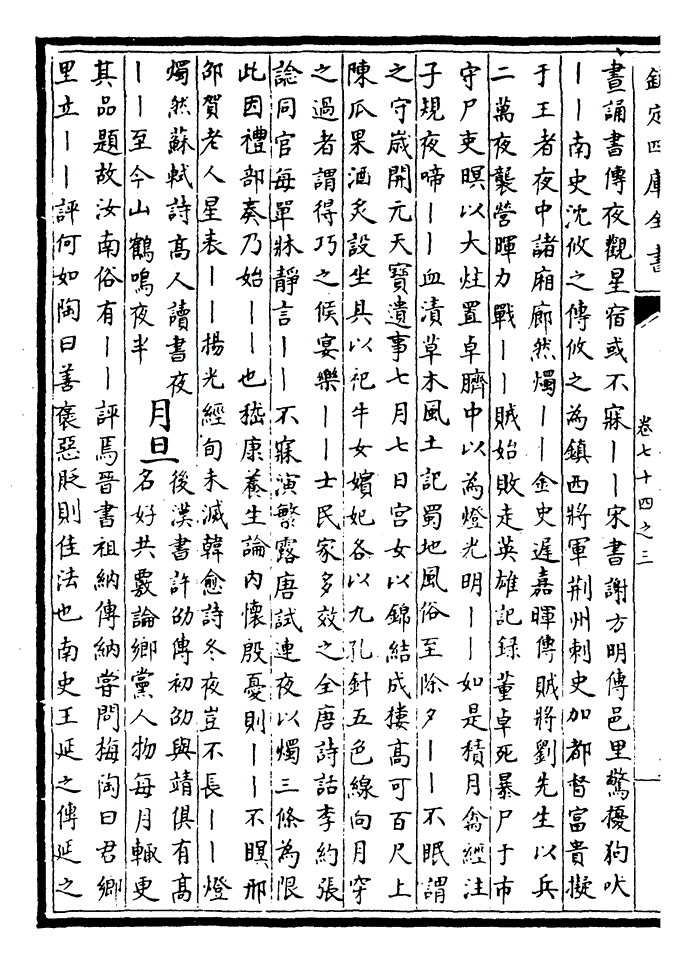 欽定四庫全書 卷七十四之三
晝誦書傳夜觀星宿或不寐——宋書謝方明傳邑里驚擾狗吠
——南史沈攸之傳攸之為鎮西將軍荆州刺史加都督富貴擬
于王者夜中諸廂廊然燭——金史遲嘉暉傳賊將劉先生以兵
二萬夜襲營暉力戰——賊始敗走英雄記録董卓死暴尸于市
守尸吏暝以大炷置卓臍中以為燈光明——如是積月禽經注
子規夜啼——血漬草木風土記蜀地風俗至除夕——不眠謂
之守嵗開元天寳遺事七月七日宫女以錦結成樓髙可百尺上
陳瓜果酒炙設坐具以祀牛女嬪妃各以九孔針五色線向月穿
之過者謂得巧之候宴樂——士民家多效之全唐詩話李約張
諗同官每單牀靜言——不寐演繁露唐試連夜以燭三條為限
此因禮部奏乃始——也嵇康養生論内懷殷憂則——不瞑邢
邵賀老人星表——揚光經旬未滅韓愈詩冬夜豈不長——燈
燭然蘇軾詩髙人讀書夜
——至今山鶴鳴夜半
月旦
後漢書許劭傳初劭與靖俱有髙
名好共覈論鄉黨人物每月輒更
其品題故汝南俗有——評焉晉書祖納傳納嘗問梅陶曰君鄉
里立——評何如陶曰善褒惡貶則佳法也南史王延之傳延之